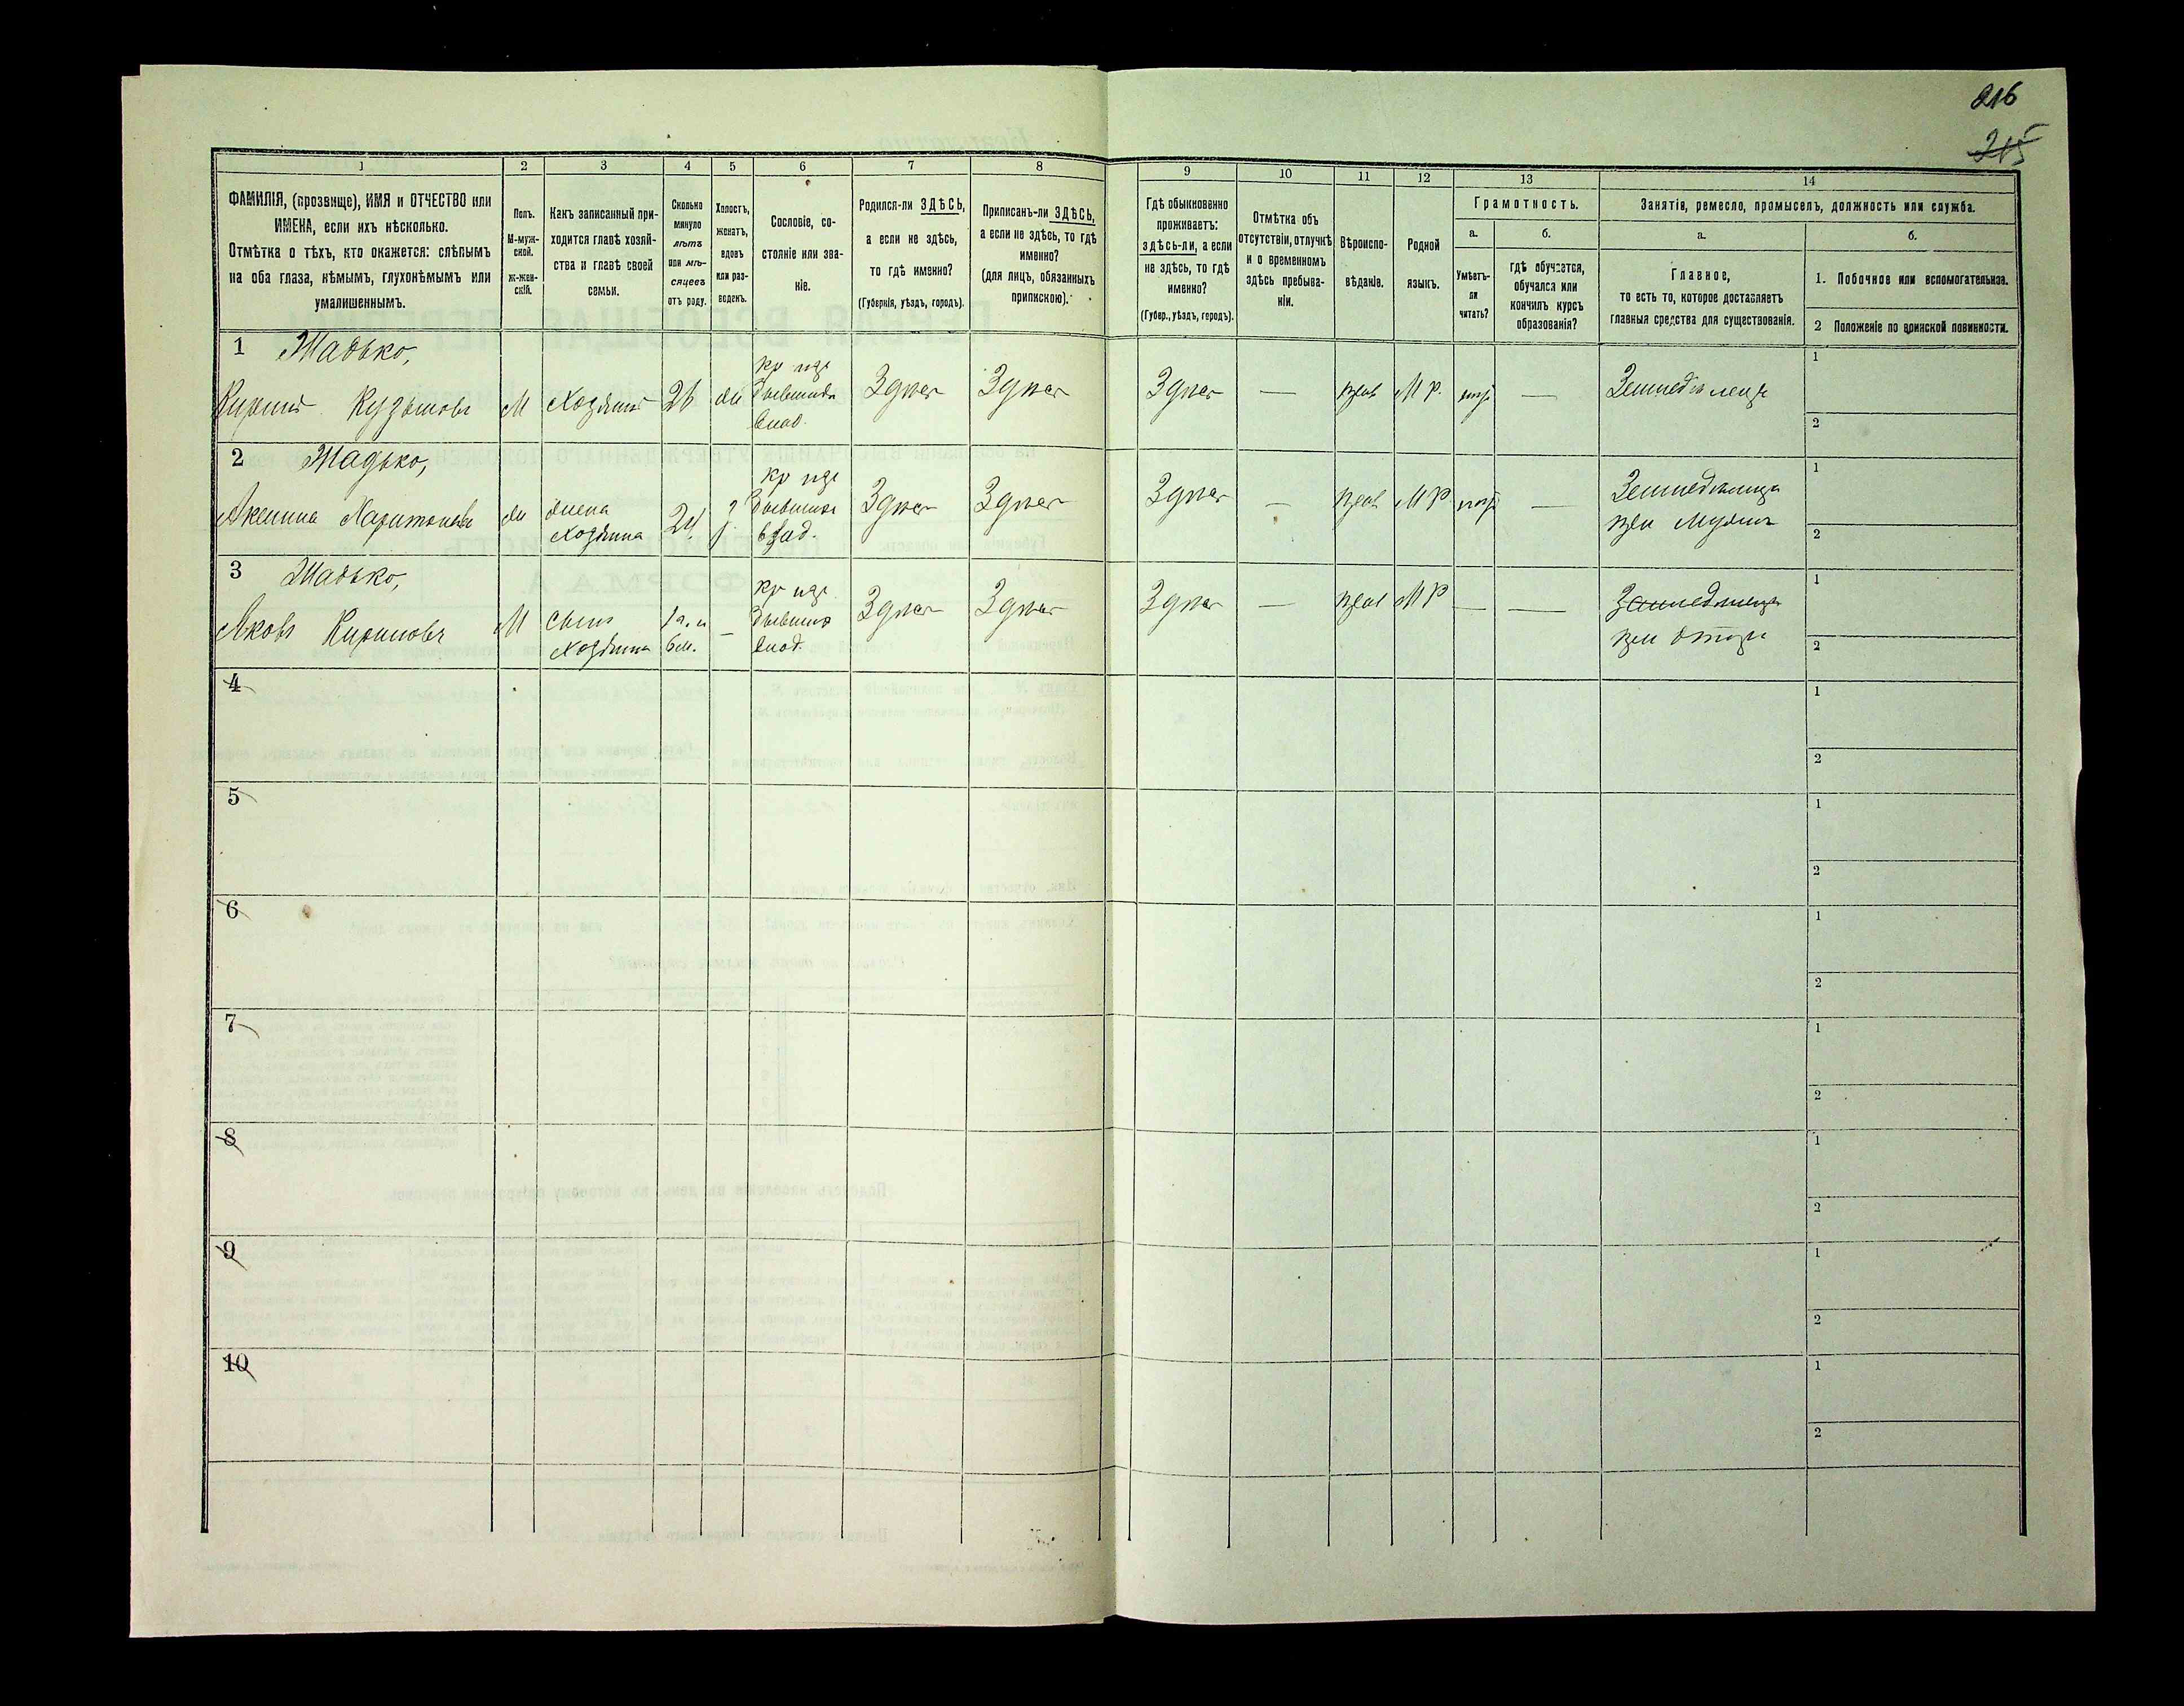 216
215
1
2
3
4
5
6
7
8
9
10
11
12
13
14
ФАМИЛІЯ, (прозвище), ИМЯ и ОТЧЕСТВО или
ИМЕНА, если ихъ нѣсколько.
Отмѣтка о тѣхъ, кто окажется: слѣпымъ
на оба глаза, нѣмымъ, глухонѣмымъ или
умалишеннымъ.
Полъ.
М-муж-
ской.
Ж-жен-
скій.
Какъ записанный при-
ходится главѣ хозяй-
ства и главѣ своей
семьи.
Сколько
минуло
лѣтъ
или мѣ-
сяцевъ
отъ роду.
Холостъ,
женатъ,
вдовъ
или раз-
веденъ.
Сословіе, со-
стояніе или зва-
ніе.
Родился-ли ЗДѢСЬ,
а если не здѣсь,
то гдѣ именно?
(Губернія, уѣздъ, городъ).
Приписанъ-ли ЗДѢСЬ,
а если не здѣсь, то гдѣ
именно?
(для лицъ, обязанныхъ
припискою).
Гдѣ обыкновенно
проживаетъ:
здѣсь-ли, а если
не здѣсь, то гдѣ
именно?
(Губер., уѣздъ, городъ).
Отмѣтка объ
отсутствіи, отлучкѣ
и о временномъ
здѣсь пребыва-
ніи.
Вѣроиспо-
вѣданіе.
Родной
языкъ.
Грамотность.
а.
Умѣетъ-
ли
читать?
б.
гдѣ обучается,
обучался или
кончилъ курсъ
образованія?
Занятіе, ремесло, промыселъ, должность или служба.
а.
Главное,
то есть то, которое доставляетъ
главныя средства для существованія.
б.
1. Побочное или вспомогательное.
2 Положеніе по воинской повинности.
1 Жадько,
Кирилъ Кузьмовъ
М
Хозяинъ
26
Кр изъ
бывших
влад.
Здѣсь
Здѣсь
Здѣсь
—
прав
М Р.
—
Земледѣлецъ
1
2
2 Жадько,
Аксинья Харитонова
жена
хозяина
24
Кр изъ
бывших
влад.
Здѣсь
Здѣсь
Здѣсь
—
прав
М Р
—
при мужѣ
1
2
3 Жадько,
Яковъ Кириловъ
М
Сынъ
хозяина
1 г. и
6 м.
—
Кр изъ
бывших
влад.
Здѣсь
Здѣсь
Здѣсь
—
прав
М Р
—
—
при отцѣ
1
2
4
1
2
5
1
2
6
1
2
7
1
2
8
1
2
9
1
2
10
1
2